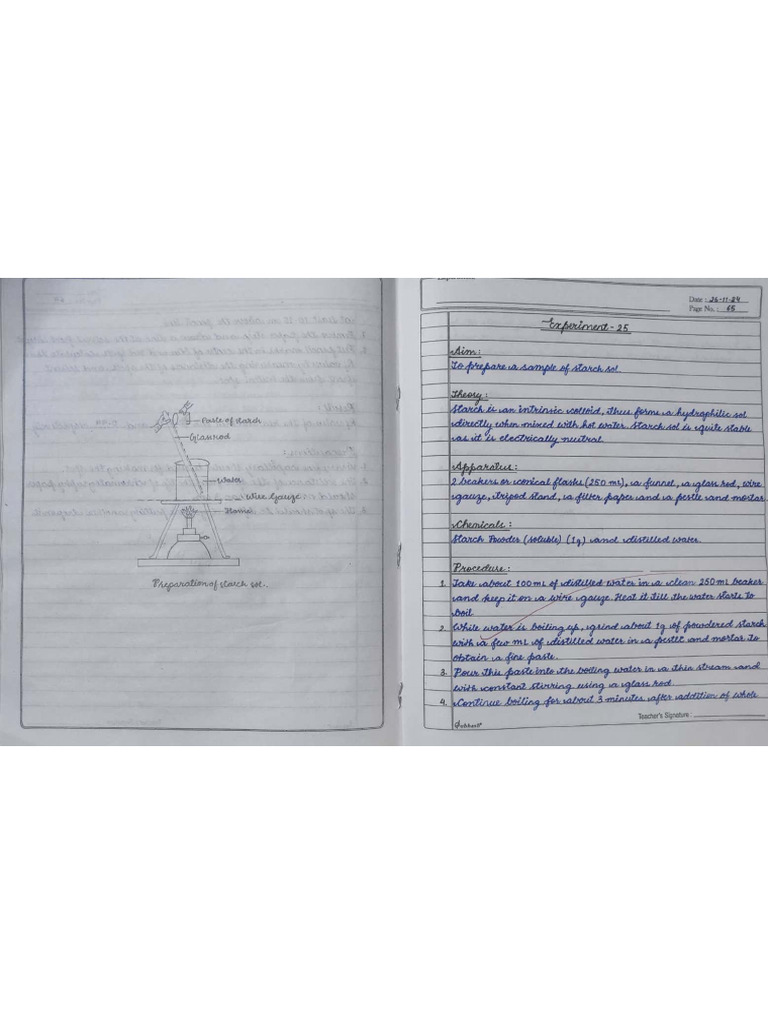 Paste of starch
Glass rod
Water
Wire Gauze
Flame
Preparation of starch sol.
Date : 26-11-24
Page No. : 65
Experiment - 25
Aim:
To prepare a sample of starch sol.
Theory:
Starch is an intrinsic colloid, thus forms a hydrophilic sol
directly when mixed with hot water. Starch sol is quite stable
as it is electrically neutral.
Apparatus:
2 beakers or conical flasks (250 mL), a funnel, a glass rod, wire
gauze, tripod stand, a filter paper and a pestle and mortar.
Chemicals:
Starch Powder (soluble) (1g) and distilled water.
Procedure:
1. Take about 100 mL of distilled water in a clean 250 mL beaker
and keep it on a wire gauze. Heat it till the water starts to
boil
2. While water is boiling up, grind about 1g of powdered starch
with a few mL of distilled water in a pestle and mortar to
obtain a fine paste.
3. Pour this paste into the boiling water in a thin stream and
with constant stirring using a glass rod.
4. Continue boiling for about 3 minutes after addition of whole
Teacher's Signature :